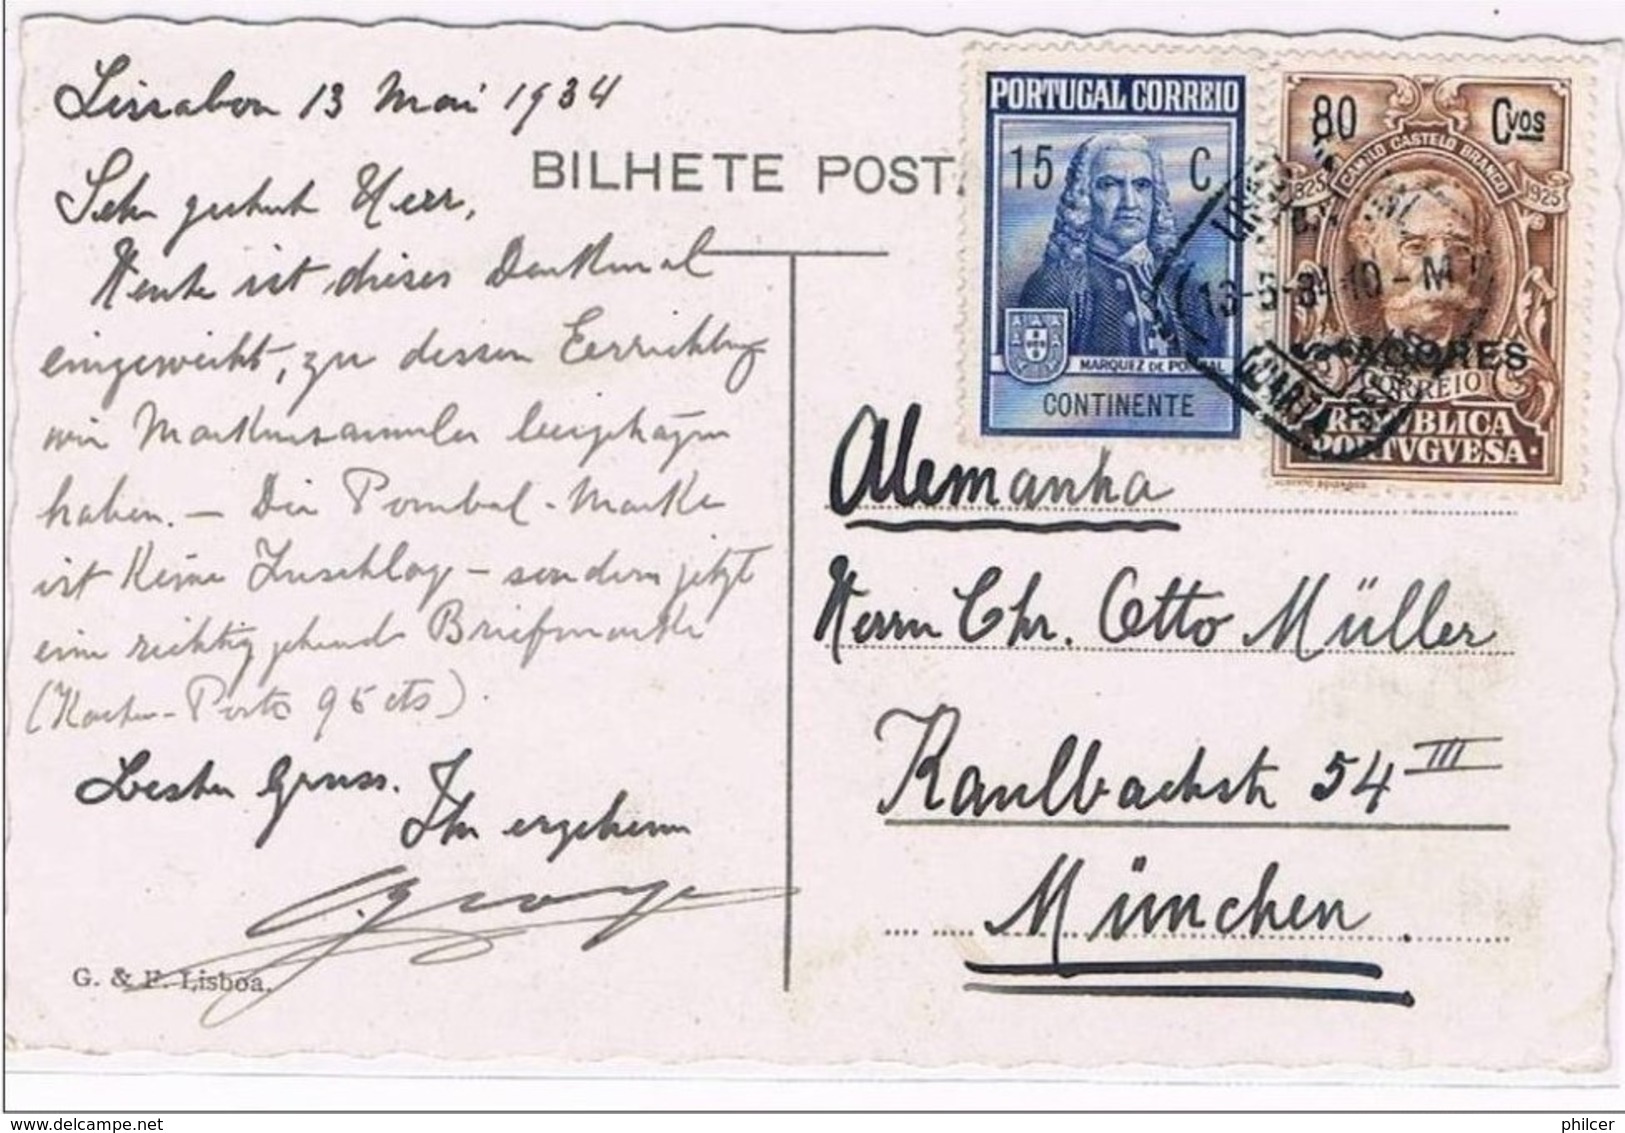 Lissabon 13 Mai 1934
BILHETE POST
Sehr geehrter Herr,
Heute ist dieses Denkmal
eingeweiht, zu dessen Errichtung
wir Markensammler beigetragen
haben. – Die Pombal-Marke
ist keine Zuschlag – sondern jetzt
eine richtig gehende Briefmarke
(Karten-Porto 95 cts).
Besten Gruss.
Ihr ergebener
G. & F. Lisboa.
PORTUGAL CORREIO
15 C
MARQUEZ DE POMBAL
CONTINENTE
80 Cvos
CAMILO CASTELO BRANCO
1825 1925
AÇORES
CORREIO
REPVBLICA
PORTVGVESA
13-5-34 10-M
Alemanha
Herrn Chr. Otto Müller
Kaulbachstr 54 III
München.
delcampe.net
philcer